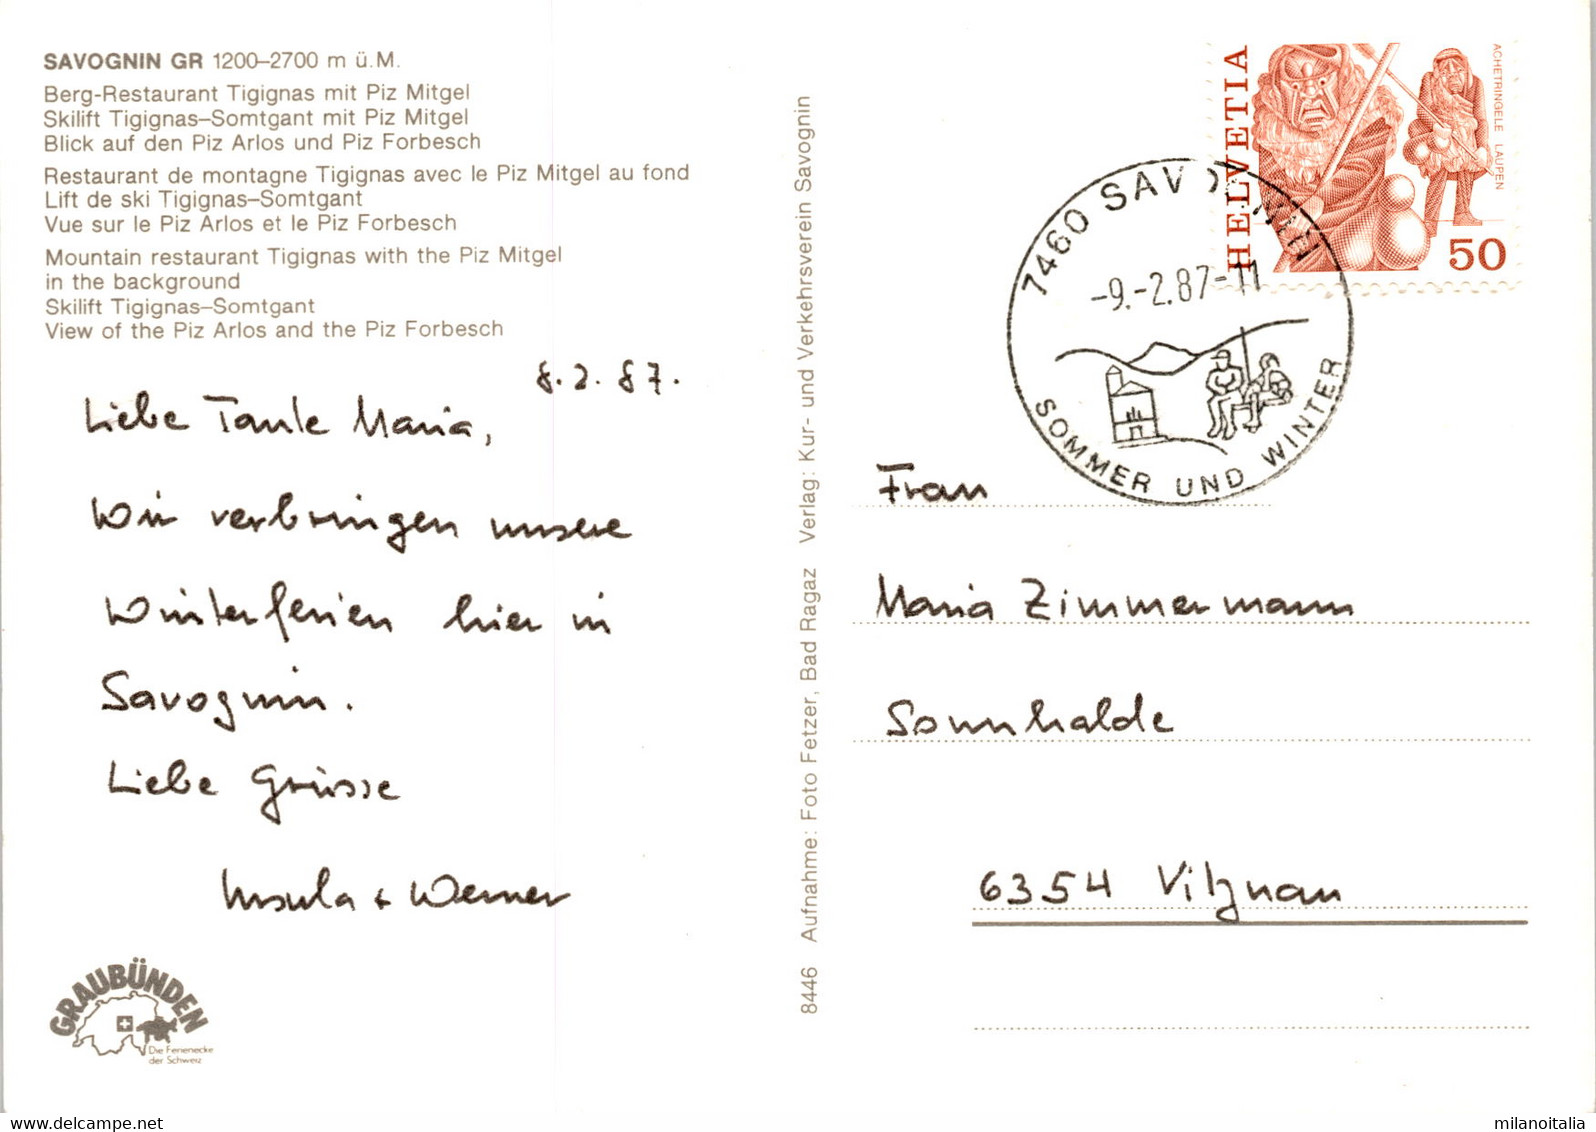 SAVOGNIN GR 1200–2700 m ü.M.
Berg-Restaurant Tigignas mit Piz Mitgel
Skilift Tigignas–Somtgant mit Piz Mitgel
Blick auf den Piz Arlos und Piz Forbesch
Restaurant de montagne Tigignas avec le Piz Mitgel au fond
Lift de ski Tigignas–Somtgant
Vue sur le Piz Arlos et le Piz Forbesch
Mountain restaurant Tigignas with the Piz Mitgel
in the background
Skilift Tigignas–Somtgant
View of the Piz Arlos and the Piz Forbesch
8.2.87.
Liebe Tante Maria,
Wir verbringen unsere
Winterferien hier in
Savognin.
Liebe Grüsse
Ursula + Werner
GRAUBÜNDEN
Die Ferienecke
der Schweiz
8446 Aufnahme: Foto Fetzer, Bad Ragaz Verlag: Kur- und Verkehrsverein Savognin
HELVETIA
ACHETRINGELE LAUPEN
50
7460 SAVOGNIN
-9.-2.87-11
SOMMER UND WINTER
Frau
Maria Zimmermann
Sonnhalde
6354 Vitznau
milanoitalia